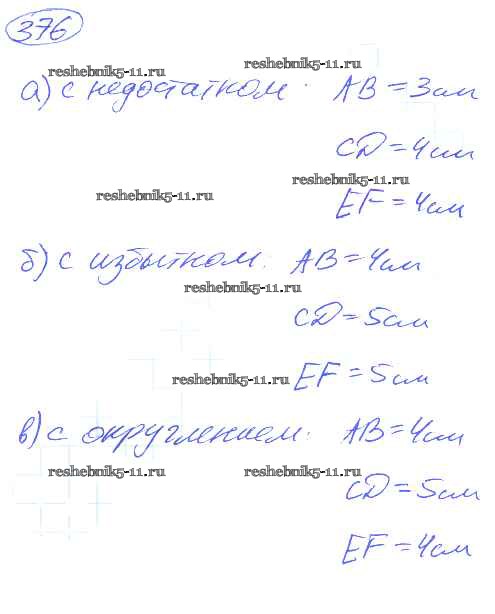 376
reshebnik5-11.ru reshebnik5-11.ru
а) с недостатком: AB = 3 см
CD = 4 см
reshebnik5-11.ru
reshebnik5-11.ru
EF = 4 см
б) с избытком: AB = 4 см
reshebnik5-11.ru
CD = 5 см
reshebnik5-11.ru EF = 5 см
в) с округлением: AB = 4 см
reshebnik5-11.ru reshebnik5-11.ru
CD = 5 см
EF = 4 см